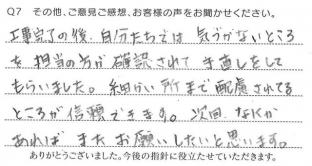 Q7 その他、ご意見ご感想、お客様の声をお聞かせください。
工事完了の後、自分たちでは 気づかないところ
を 担当の方が 確認されて 手直しをして
もらいました。細かい所まで配慮されてる
ところが 信頼できます。次回、なにか
あれば またお願いしたいと思います。
ありがとうございました。今後の指針に役立たせていただきます。